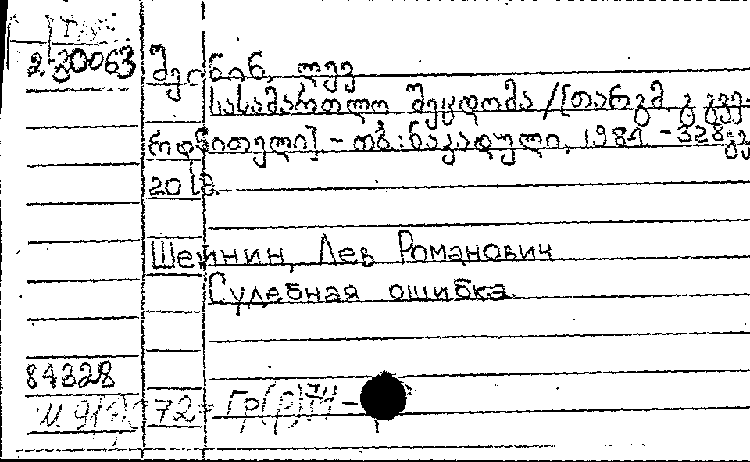 2-30063 შეინინ, ლევ
სასამართლო შეცდომა /[თარგმ. გ. გვე-
რდწითელი]. - თბ.: ნაკადული, 1984. - 328 გვ
20 სმ.
Шейнин, Лев Романович
Судебная ошибка.
84328
72